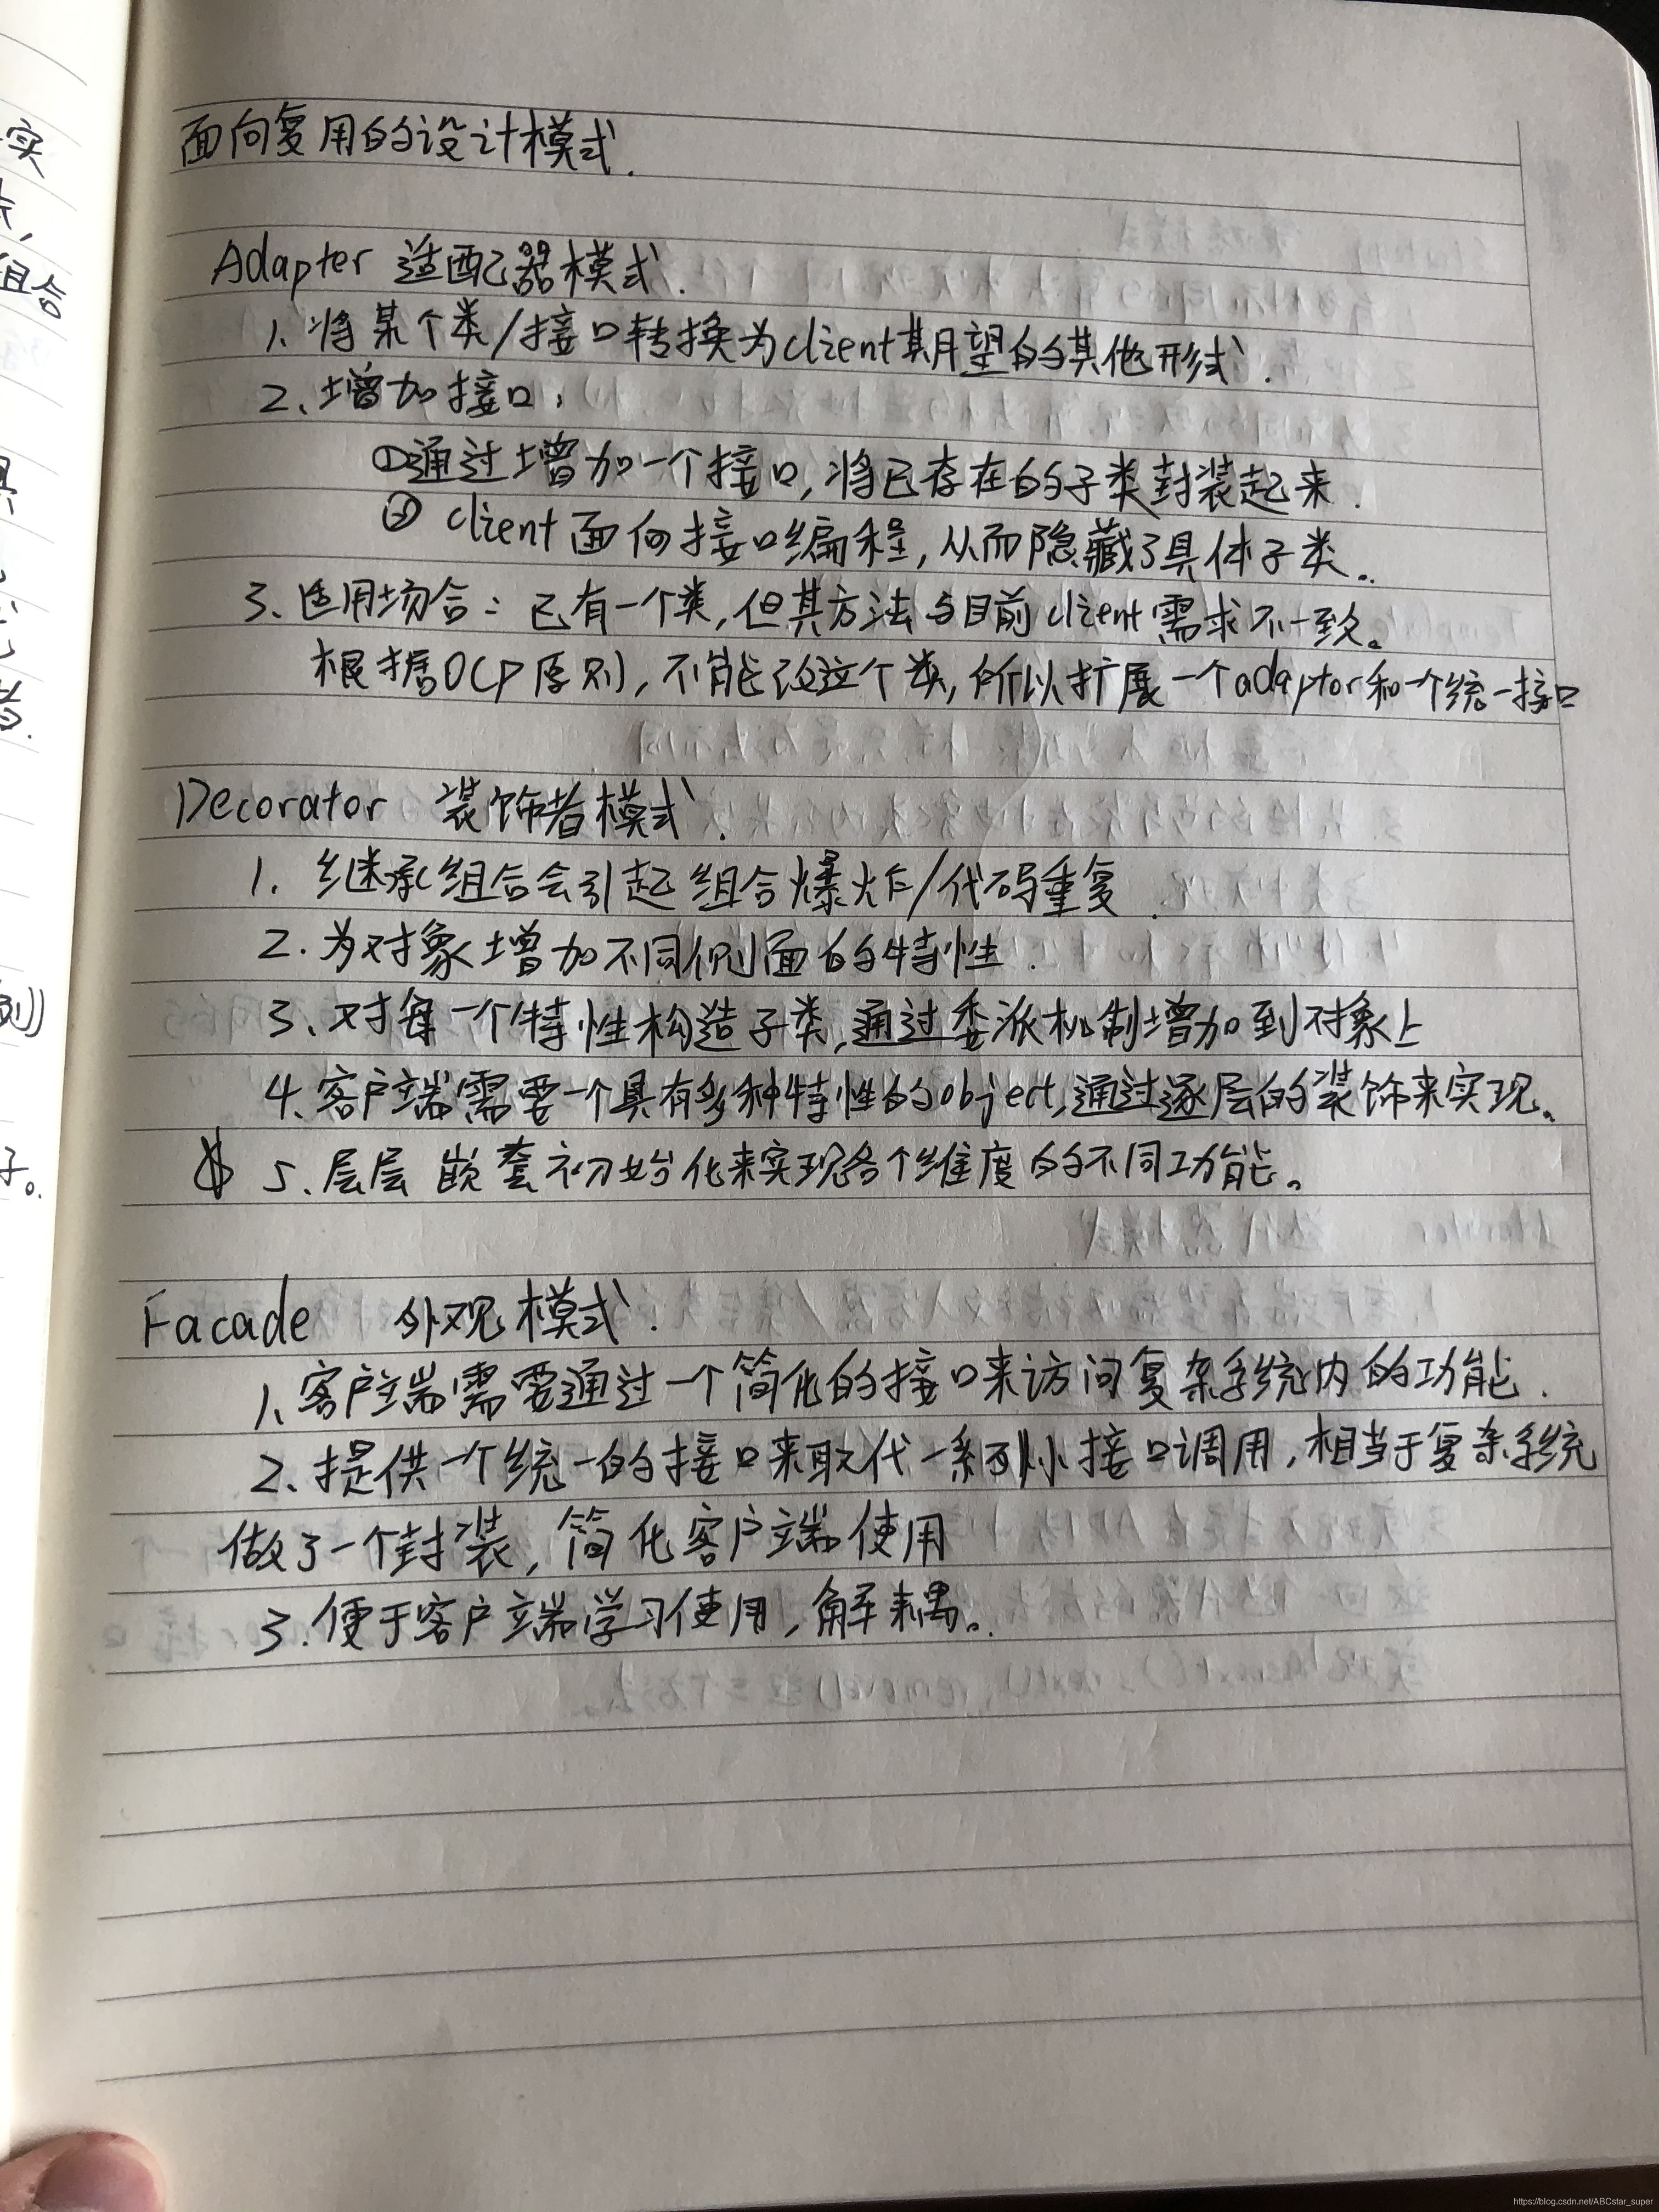 面向复用的设计模式.
Adapter 适配器模式.
1、将某个类/接口转换为client期望的其他形式.
2、增加接口:
①通过增加一个接口,将已存在的子类封装起来.
② client面向接口编程,从而隐藏了具体子类..
3、适用场合:已有一个类,但其方法与目前client需求不一致。
根据OCP原则,不能改这个类,所以扩展一个adaptor和一个统一接口
Decorator 装饰者模式.
1. 继承组合会引起组合爆炸/代码重复.
2. 为对象增加不同侧面的特性.
3、对每一个特性构造子类,通过委派机制增加到对象上
4.客户端需要一个具有多种特性的object,通过逐层的装饰来实现。
5、层层嵌套初始化来实现各个维度的不同功能。
Facade 外观模式.
1、客户端需要通过一个简化的接口来访问复杂系统内的功能.
2、提供一个统一的接口来取代一系列小接口调用,相当于复杂系统
做了一个封装,简化客户端使用
3.便于客户端学习使用,解耦。.
实
组合
则)
子。
https://blog.csdn.net/ABCstar_super